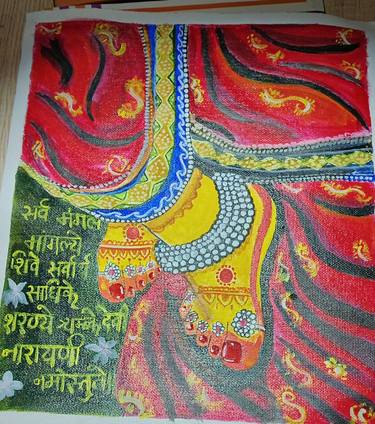 सर्व मंगल
मांगल्ये
शिवे सर्वार्थ
साधिके
शरण्ये त्र्यम्बके देवी
नारायणी
नमोस्तुते॥